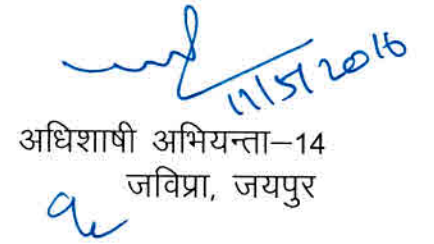 11/5/2016
अधिशाषी अभियन्ता–14
जविप्रा, जयपुर